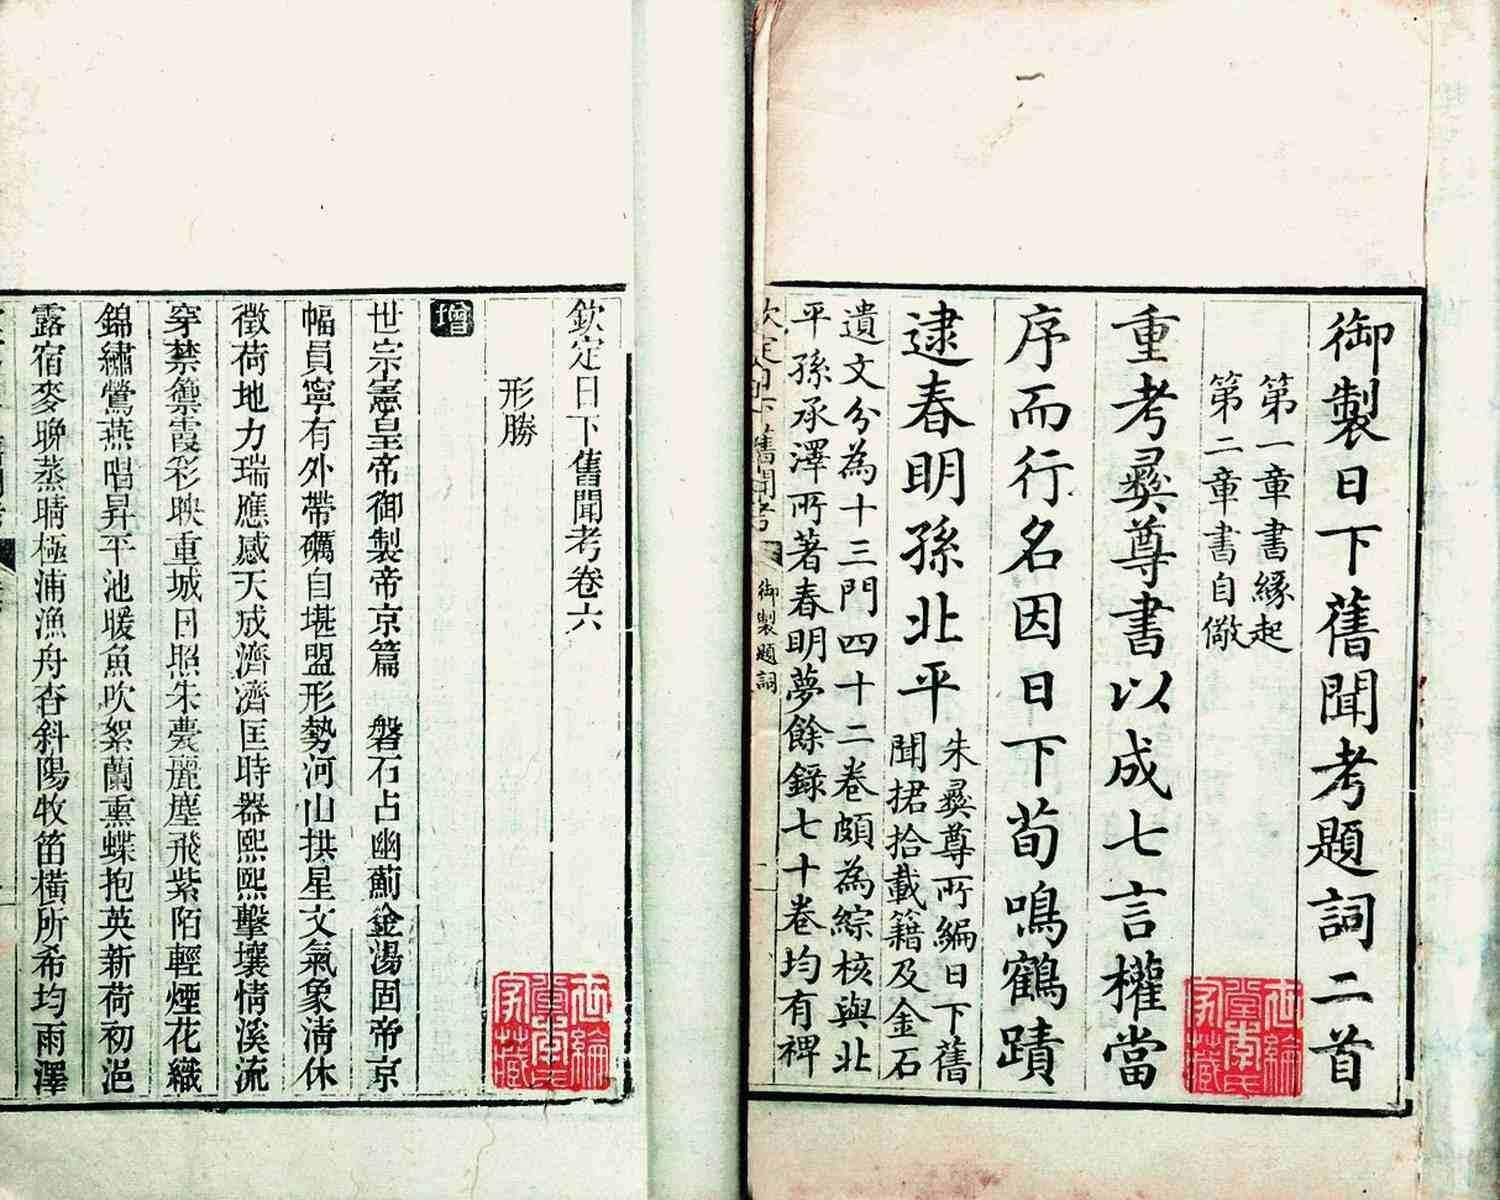 御製日下舊聞考題詞二首
第一章書緣起
第二章書自儆
重考彝尊書以成七言權當
序而行名因日下荀鳴鶴蹟
逮春明孫北平
朱彝尊所編日下舊
聞捃拾載籍及金石
遺文分為十三門四十二卷頗為綜核與北
平孫承澤所著春明夢餘錄七十卷均有裨
欽定日下舊聞考
御製題詞
一
世綸堂李氏家藏
欽定日下舊聞考卷六
形勝
增
世宗憲皇帝御製帝京篇 磐石占幽薊金湯固帝京
幅員寧有外帶礪自堪盟形勢河山拱星文氣象淸休
徵荷地力瑞應感天成濟濟匡時器熙熙擊壤情溪流
穿禁籞霞彩映重城日照朱甍麗塵飛紫陌輕煙花織
錦繡鶯燕唱昇平池暖魚吹絮蘭熏蝶抱英新荷初浥
露宿麥晚蒸晴極浦漁舟杳斜陽牧笛橫所希均雨澤
世綸堂李氏家藏